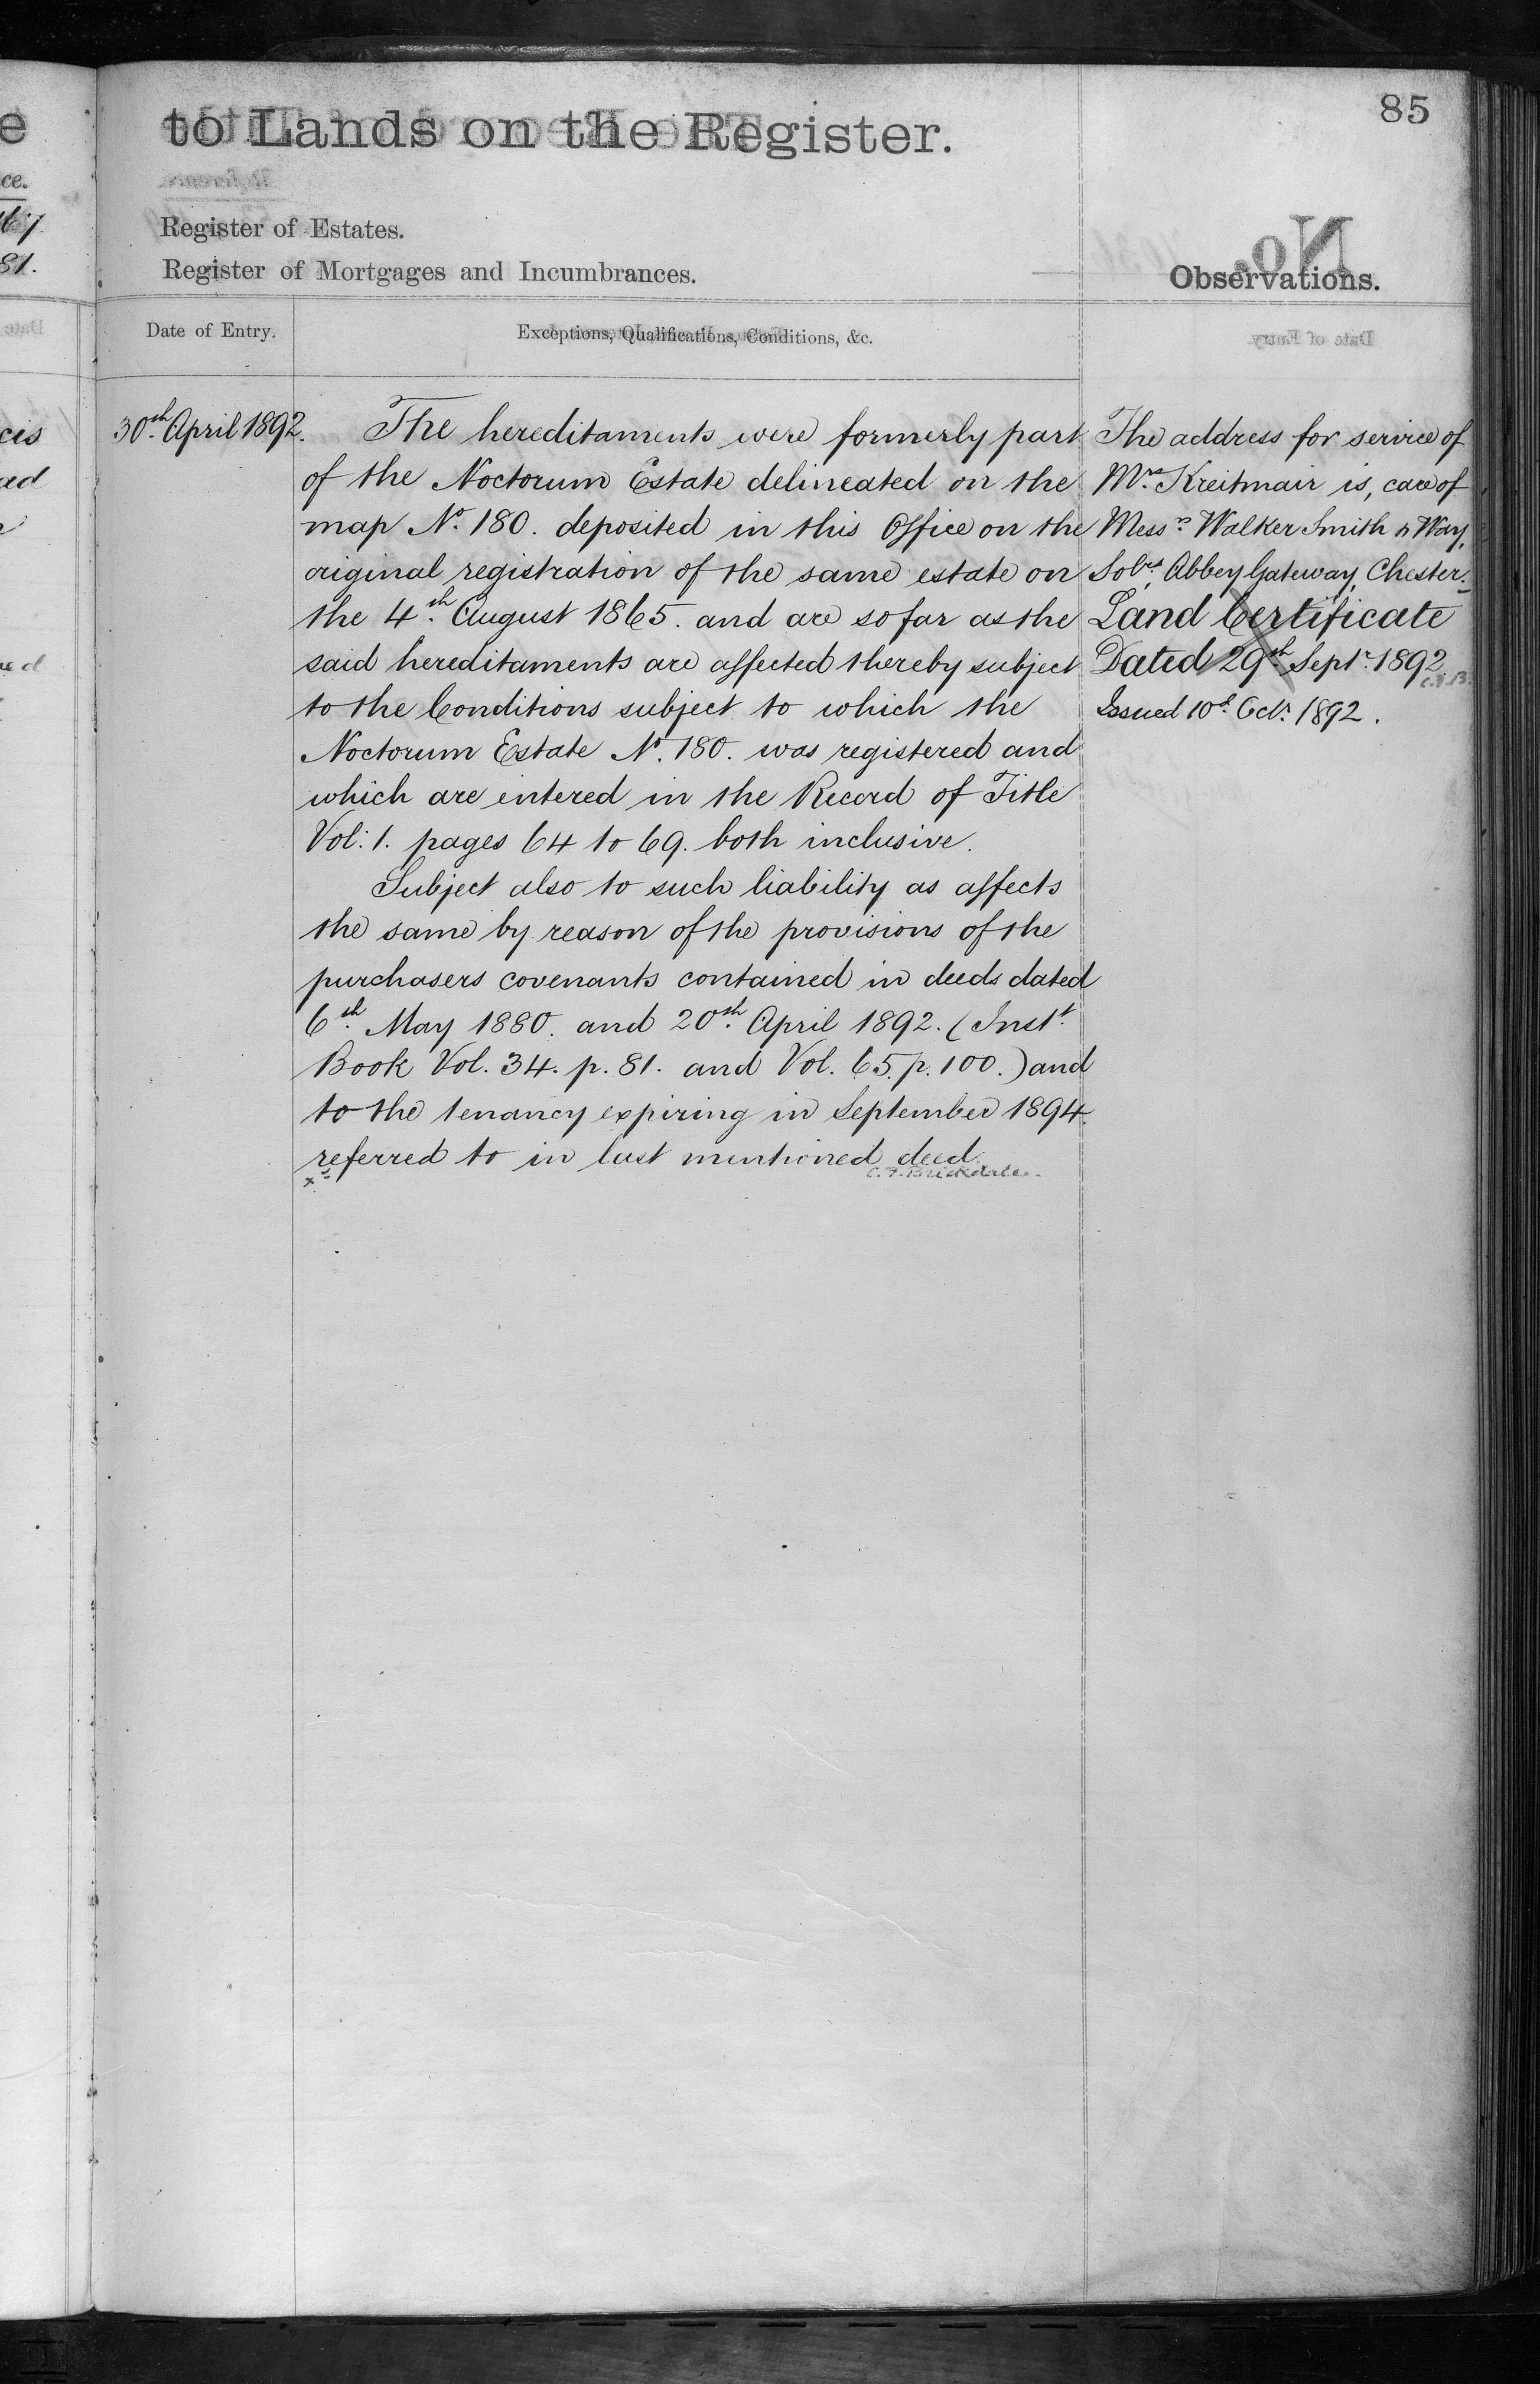 85
to Lands on the Register.
Register of Estates.
Register of Mortgages and Incumbrances.
Observations.
Date of Entry.
Exceptions, Qualifications, Conditions, &c.
30th April 1892.
The hereditaments were formerly part
of the Noctorum Estate delineated on the
map No. 180. deposited in this Office on the
original registration of the same estate on
the 4th August 1865. and are so far as the
said hereditaments are affected thereby subject
to the Conditions subject to which the
Noctorum Estate No. 180. was registered and
which are entered in the Record of Title
Vol: 1. pages 64 to 69. both inclusive.
Subject also to such liability as affects
the same by reason of the provisions of the
purchasers covenants contained in deeds dated
6th May 1880. and 20th April 1892. (Instt.
Book Vol. 34. p. 81. and Vol. 65. p. 100.) and
to the tenancy expiring in September 1894.
referred to in last mentioned deed.
C. F. Brickdale.
The address for service of
Mrs. Kreitmair is, care of
Messrs. Walker Smith & Way,
Solrs, Abbey Gateway, Chester.
Land Certificate
Dated 29th Septr. 1892
C.F.B.
Issued 10th Octr. 1892.
e
ce.
67.
81.
cis
ad